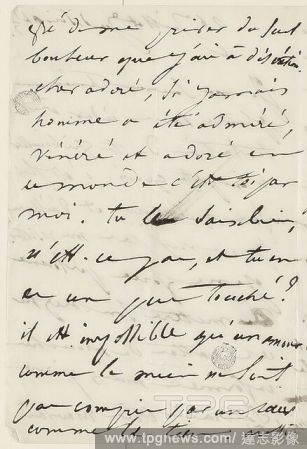 de me priver du seul
bonheur que j'ai à discrétion
cher adoré, Si jamais
homme a été admiré,
vénéré et adoré en
ce monde c'est toi par
moi. tu le sais bien,
n'est-ce pas, et tu en
es un peu touché?
il est impossible qu'un amour
comme le mien ne soit
pas compris par un cœur
comme le tien
TPG
www.tpgnews.com / 達志影像